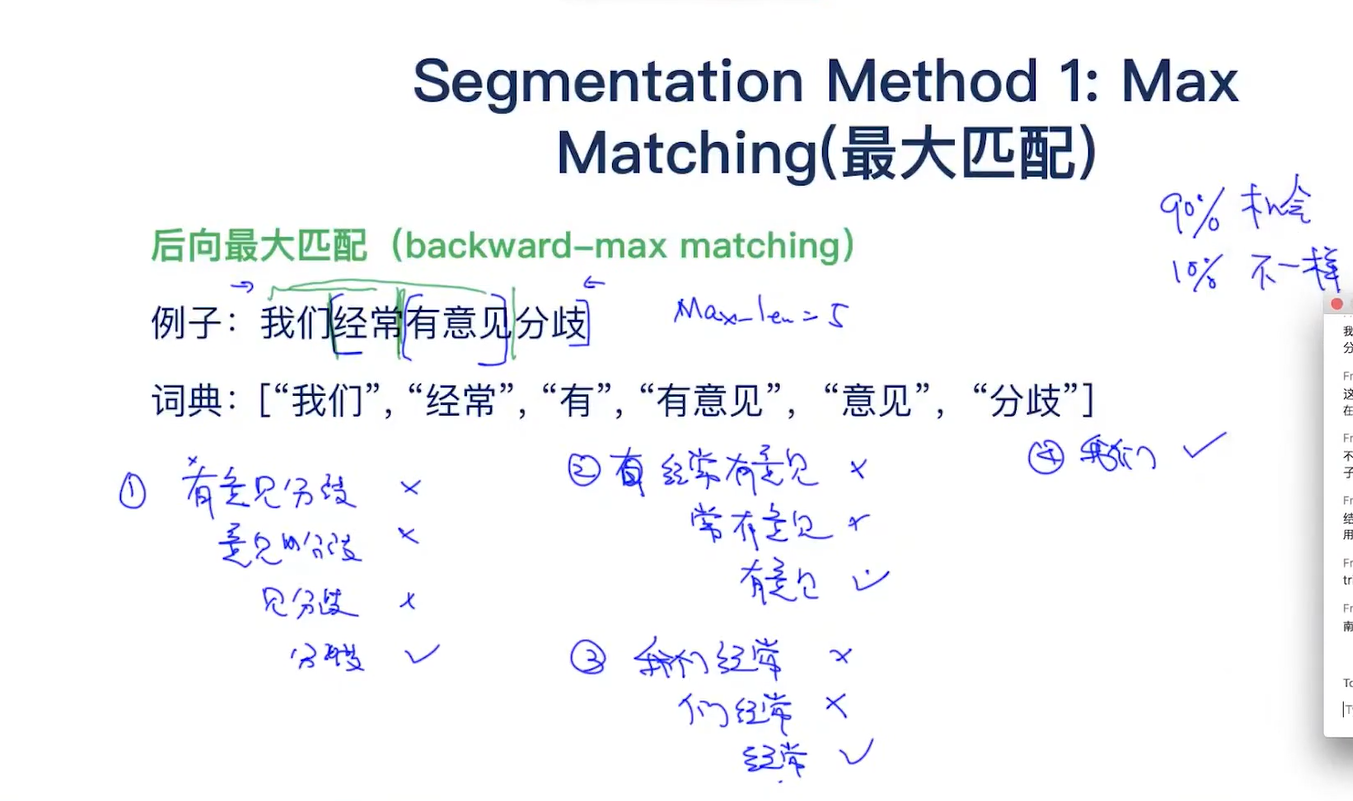 Segmentation Method 1: Max
Matching(最大匹配)
90% 机会
10% 不一样
后向最大匹配（backward-max matching）
例子：我们经常有意见分歧
Max_len = 5
词典：[“我们”, “经常”, “有”, “有意见”, “意见”, “分歧”]
① 有意见分歧 ×
意见分歧 ×
见分歧 ×
分歧 ✓
② 经常有意见 ×
常有意见 ×
有意见 ✓
③ 我们经常 ×
们经常 ×
经常 ✓
④ 我们 ✓
我
分
Fr
这
在
Fr
不
子
Fr
结
用
Fr
tri
Fr
南
To